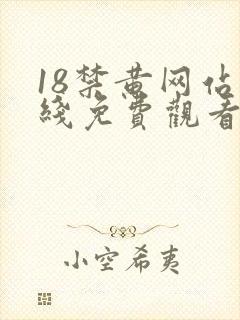 18禁黄网佔
綫免費觀看
小空希夷